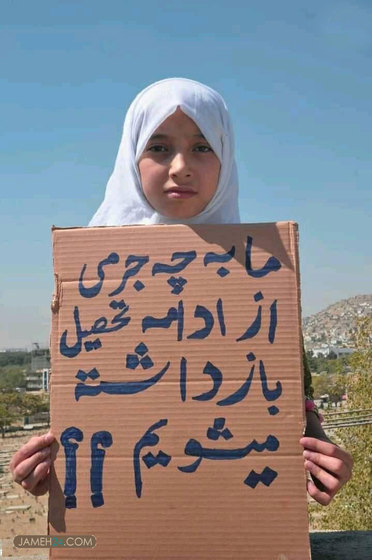 ما به چه جرمی
از ادامه تحصیل
بازداشته
میشویم ؟؟
JAMEH24.COM